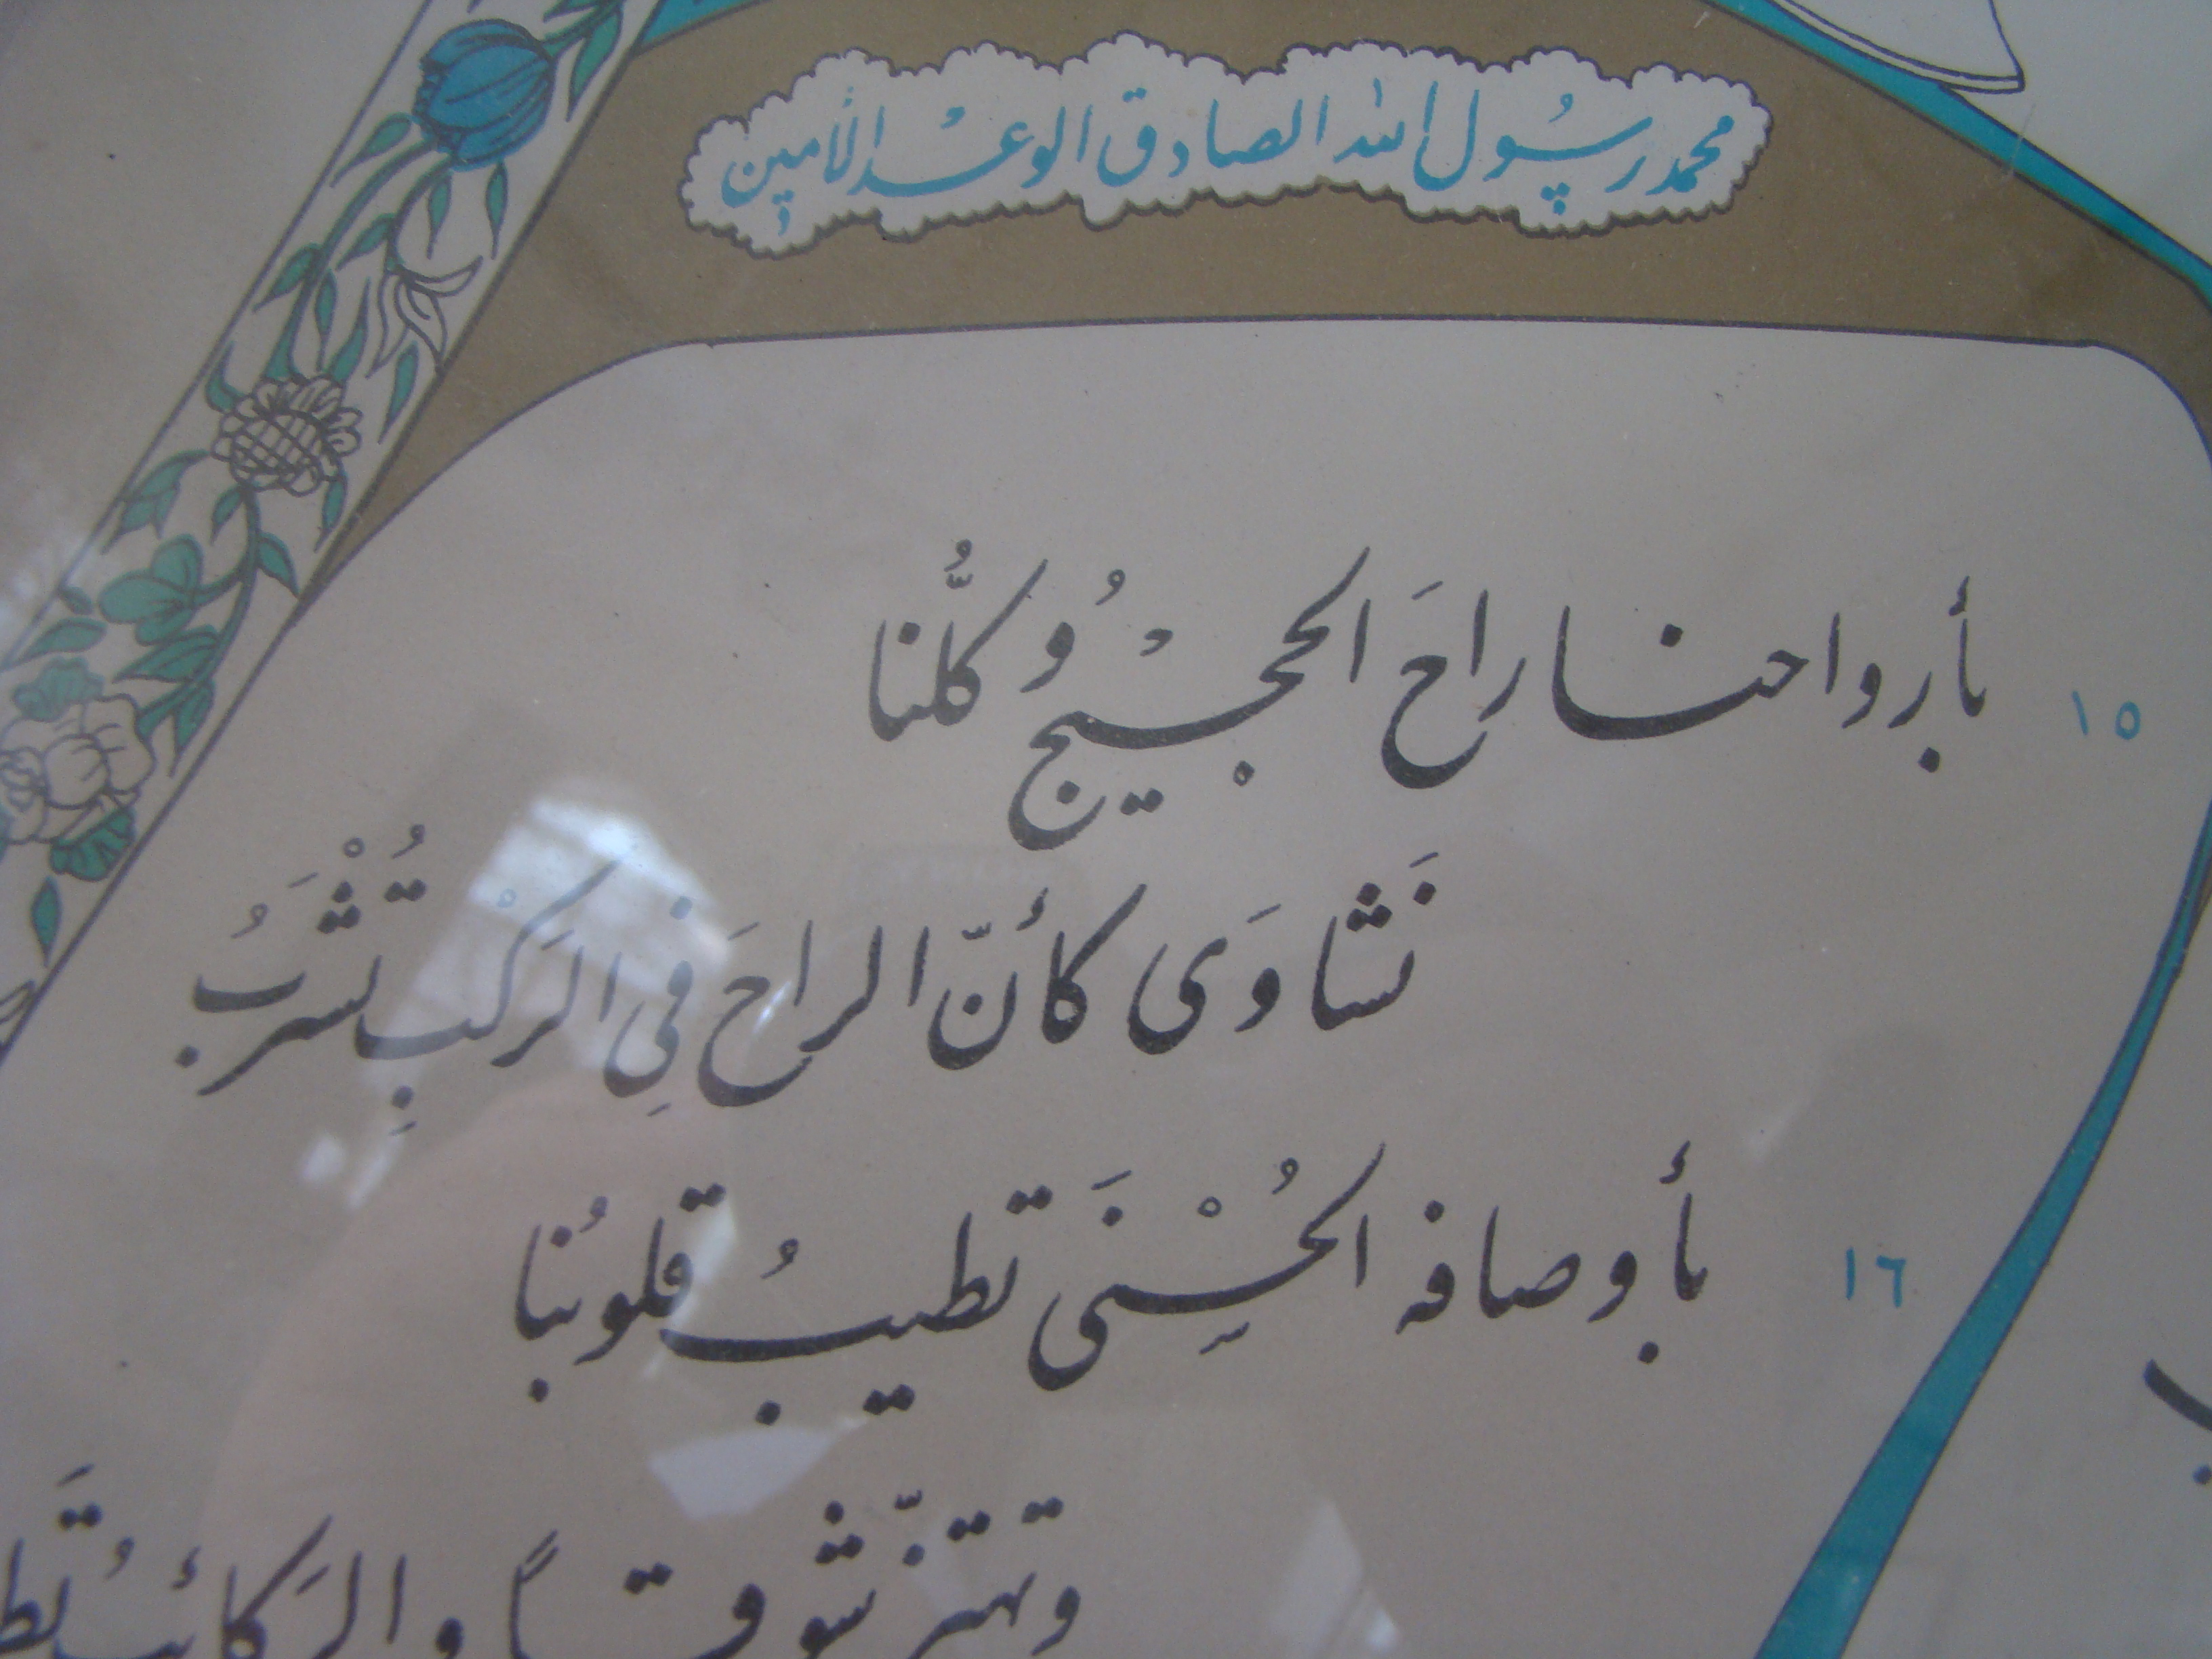 محمد رسول الله الصادق الوعد الأمين
١٥ بأرواحنا راحَ الحجيجُ وكلُّنا
نَشاوَى كأنّ الراحَ فِي الرَكْبِ تُشْرَبُ
١٦ بأوصافه الحُسْنَى تطيبُ قلوبُنا
وتهتزّ شوقاً والرَكائبُ